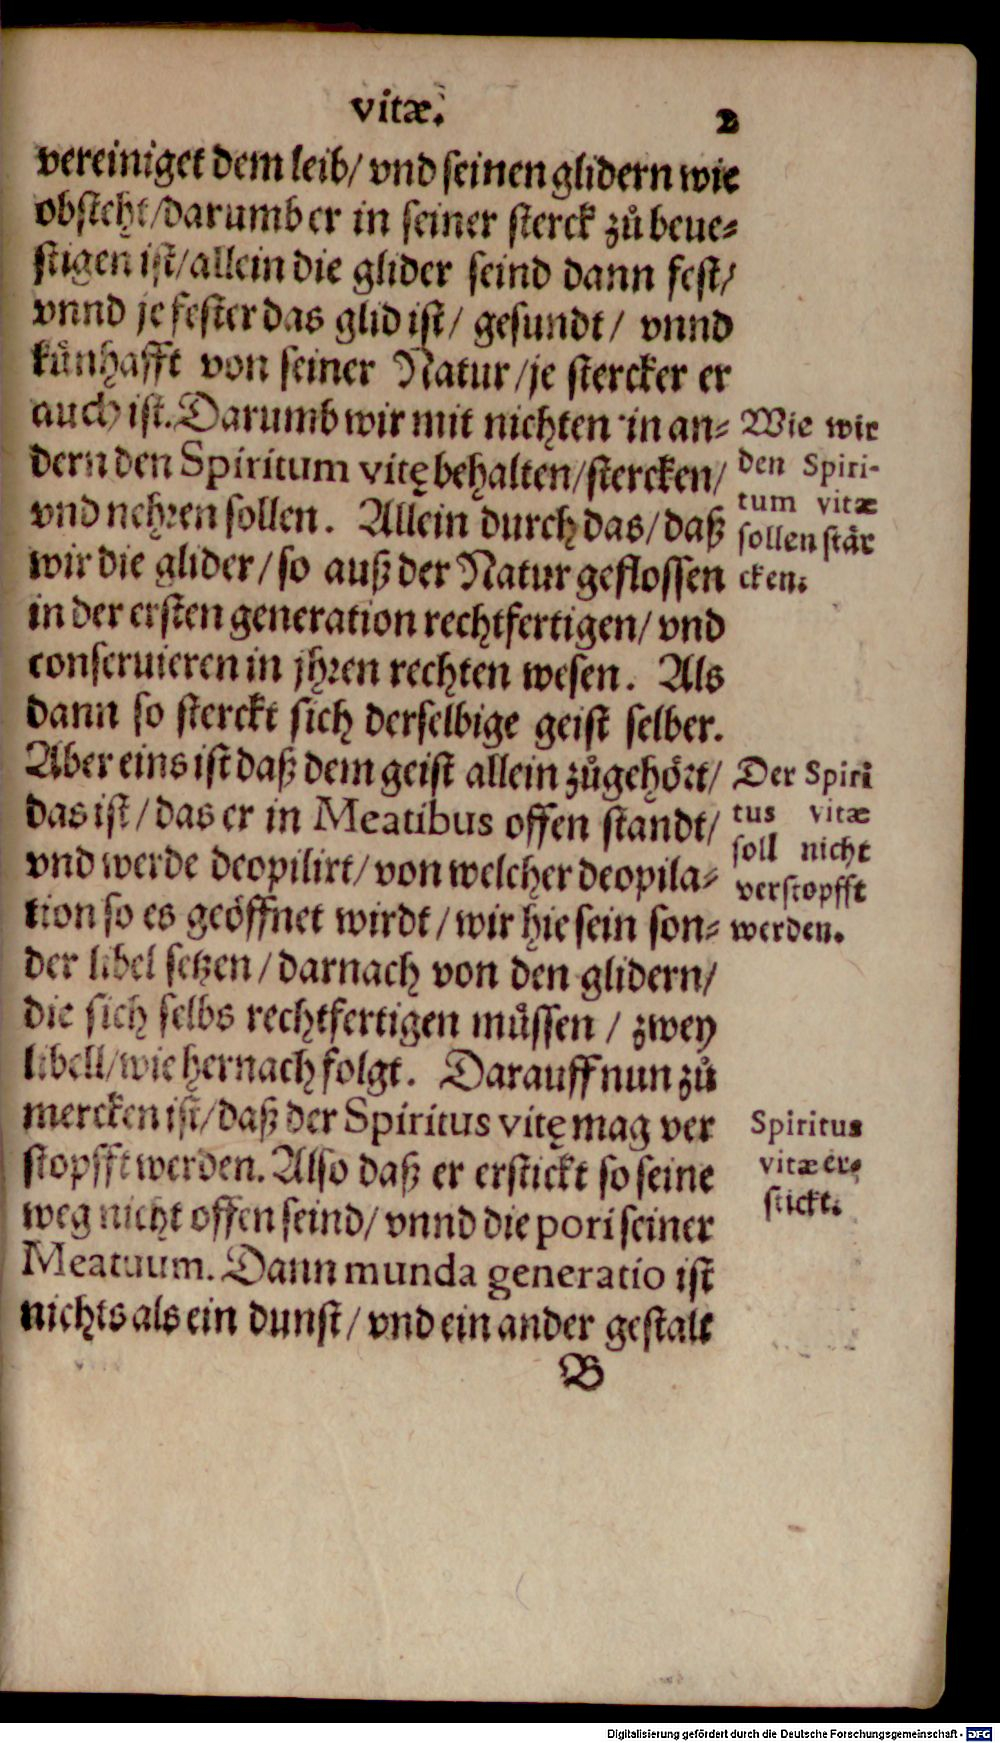 vitæ. 2
vereiniget dem leib/ vnd seinen glidern wie
obsteht/darumb er in seiner sterck zů beue⸗
stigen ist/allein die glider seind dann fest/
vnnd je fester das glid ist/ gesundt/ vnnd
kůnhafft von seiner Natur/je stercker er
auch ist. Darumb wir mit nichten in an⸗
dern den Spiritum vitę behalten/stercken/
vnd nehren sollen. Allein durch das/daß
wir die glider/so auß der Natur geflossen
in der ersten generation rechtfertigen/vnd
conseruieren in jhren rechten wesen. Als
dann so sterckt sich derselbige geist selber.
Aber eins ist daß dem geist allein zůgehört/
das ist/das er in Meatibus offen standt/
vnd werde deopilirt/von welcher deopila⸗
tion so es geöffnet wirdt/wir hie sein son⸗
der libel setzen/darnach von den glidern/
die sich selbs rechtfertigen můssen / zwey
libell/wie hernach folgt. Darauff nun zů
mercken ist/daß der Spiritus vitę mag ver
stopfft werden. Also daß er erstickt so seine
weg nicht offen seind/vnnd die pori seiner
Meatuum. Dann munda generatio ist
nichts als ein dunst/vnd ein ander gestalt
B
Wie wir
den Spiri-
tum vitæ
sollen stär
cken.
Der Spiri
tus vitæ
soll nicht
verstopfft
werden.
Spiritus
vitæ er⸗
stickt.
Digitalisierung gefördert durch die Deutsche Forschungsgemeinschaft - DFG